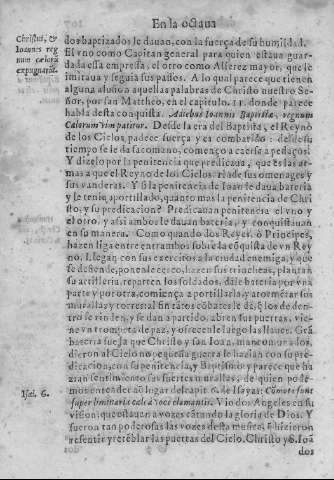 En la octaua
Christus, &
Ioannes reg
num cælorũ
expugnarũt.
dos baptizados le dauan, con la fuerça de su humildad.
El vno como Capitan general para quien estaua guar-
dada esta empressa, el otro como Alferez mayor, que le
imitaua y seguia sus passos. A lo qual parece que tienen
alguna alusion aquellas palabras de Christo nuestro Se-
ñor, por san Mattheo, en el capitulo. 11. donde parece
habla desta conquista. A diebus Ioannis Baptistæ, regnum
Cælorum vim patitur. Desde la era del Baptista, el Reyno
de los Cielos padece fuerça y es combatido: desde su
tiempo se le da sacomano, començo a caerse a pedaços:
Y dizelo por la penitencia que predicaua, que es las ar-
mas a que el Reyno de los Cielos rinde sus omenages y
sus vanderas. Y si la penitencia de Ioan le daua bateria
y le tenia aportillado, quanto mas la penitencia de Chri
sto, y su predicacion? Predicauan penitencia el vno y
el otro, y assi ambos le dauan bateria, y conquistauan
en su manera. Como quando dos Reyes, o Principes,
hazen liga entre entrambos sobre la cõquista de vn Rey
no. Llegan con sus exercitos a la ciudad enemiga, y que
se defiende, ponenle cerco, hazen sus trincheas, plantan
su artilleria, reparten los soldados, dase bateria por vna
parte y por otra, comiença a portillarla, y atormentar sus
murallas y torres: al fin tãtos cõbates le dã, q̃ los de den-
tro se rinden, y se dan a partido, abren sus puertas, vie-
ne vn trompeta de paz, y ofrecenle luego las llaues. Grã
bateria fue la que Christo y san Ioan, mancomunados,
dieron al Cielo no pequeña guerra le hazian con su pre-
dicacion, con su penitencia, y Baptismo: y parece que ha
zian sentimiento sus fuertes murallas, de quien pode-
Isai. 6.
mos entender aq̃l lugar del capit. 6. de Isayas: Cõmota sunt
super liminaria cæli à voce clamantis. Vio dos Angeles en su
vision, que estauan a vozes cãtando la gloria de Dios. Y
fueron tan poderosas las vozes desta musica, q̃ hizieron
resentir y retẽblar las puertas del Cielo. Christo y S. Ioã
dos